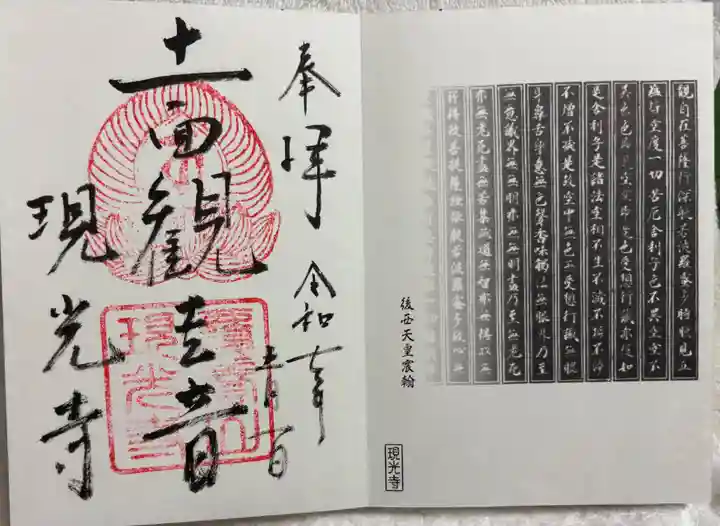 觀自在菩薩行深般若波羅蜜多時照見五
蘊皆空度一切苦厄舍利子色不異空空不
異色色即是空空即是色受想行識亦復如
是舍利子是諸法空相不生不滅不垢不淨
不增不減是故空中無色無受想行識無眼
耳鼻舌身意無色聲香味觸法無眼界乃至
無意識界無無明亦無無明盡乃至無老死
亦無老死盡無苦集滅道無智亦無得以無
所得故菩提薩埵依般若波羅蜜多故心無
後西天皇宸翰
現光寺
奉拝
令和七年
十一面観世音
現光寺